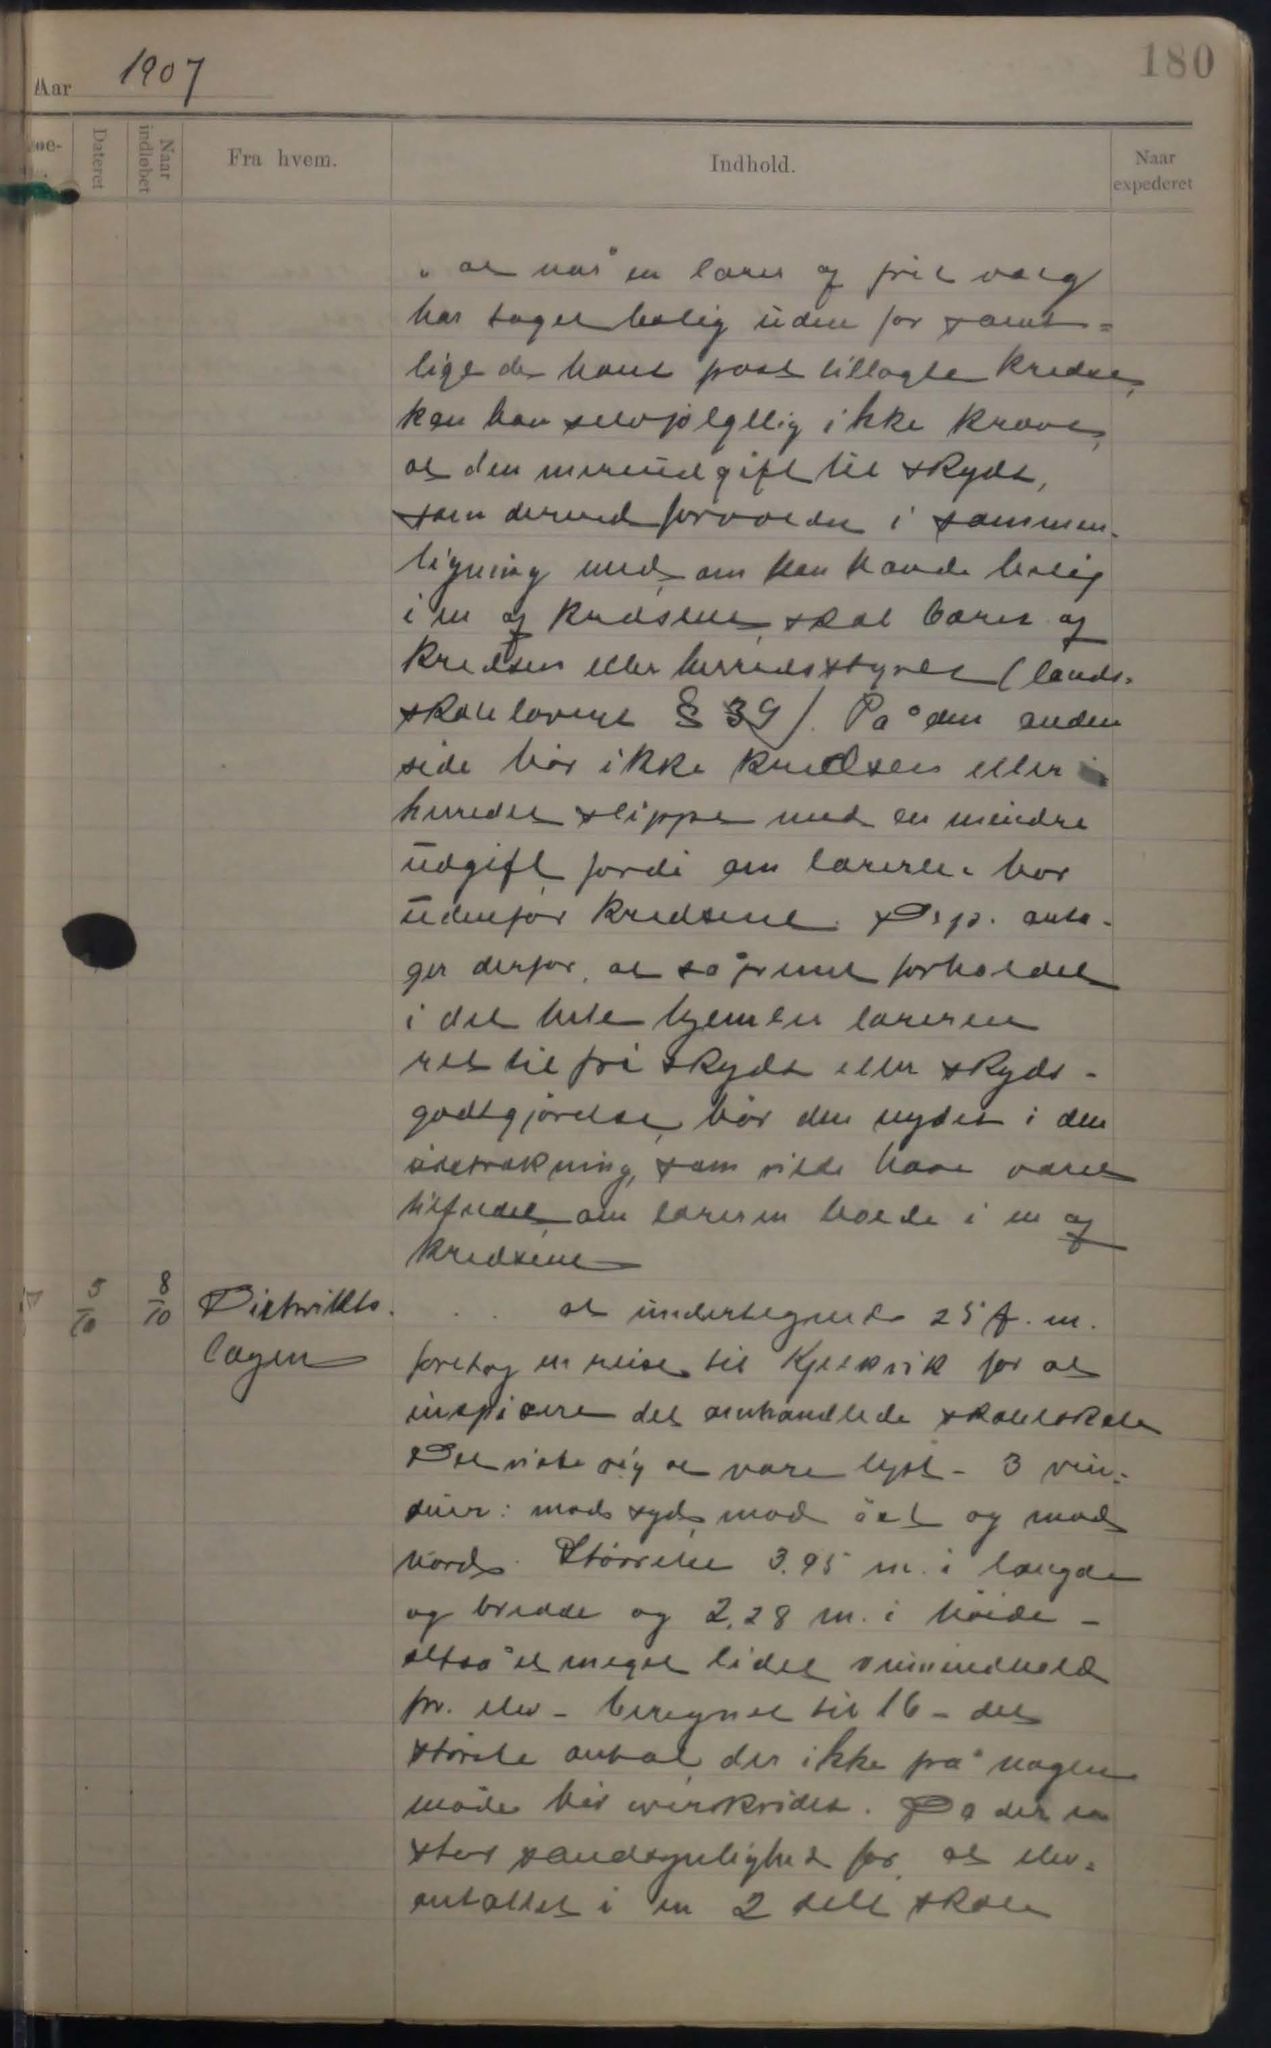 180
Aar 1907
Dateret
Naar indløbet
Fra hvem.
Indhold.
Naar expederet
„ at når en lærer af frit valg
har taget bolig uden for samt-
lige de hans post tillagte kredse,
kan han selvfølgelig ikke kræve,
at den merudgift til skyds,
som derved forvoldes i sammen-
ligning med, om han havde bolig
i en af kredsene, skal bæres af
kredsen eller herredsstyret (lands-
skolelovens § 39). På den anden
side bør ikke kredsen eller
herredet slippe med en mindre
udgift, fordi om læreren bor
udenfor kredsene. Dep. anta-
ger derfor, at såfremt forholdet
i det hele hjemler læreren
ret til fri skyds eller skyds-
godtgjørelse, bør den nydes i den
udstrækning, som vilde have været
tilfædet om læreren boede i en af
kredsene
5/10 8/10 Distrikts-
lægen
at undertegnede 25 f. m.
foretog en reise til Kjelkvik for at
inspicere det omhandlede skolelokale
Det viste sig at være lyst - 3 vin-
duer: mod syd, mod øst og mod
nord. Størrelse 3.95 m. i længde
og bredde og 2.28 m. i høide -
altså et meget lidet ruminhold
pr. elev - beregnet til 16 - det
største antal, der ikke på nogen
måde bør overskrides. Da der er
stor sandsynlighed for, at elev-
antallet i en 2 delt skole